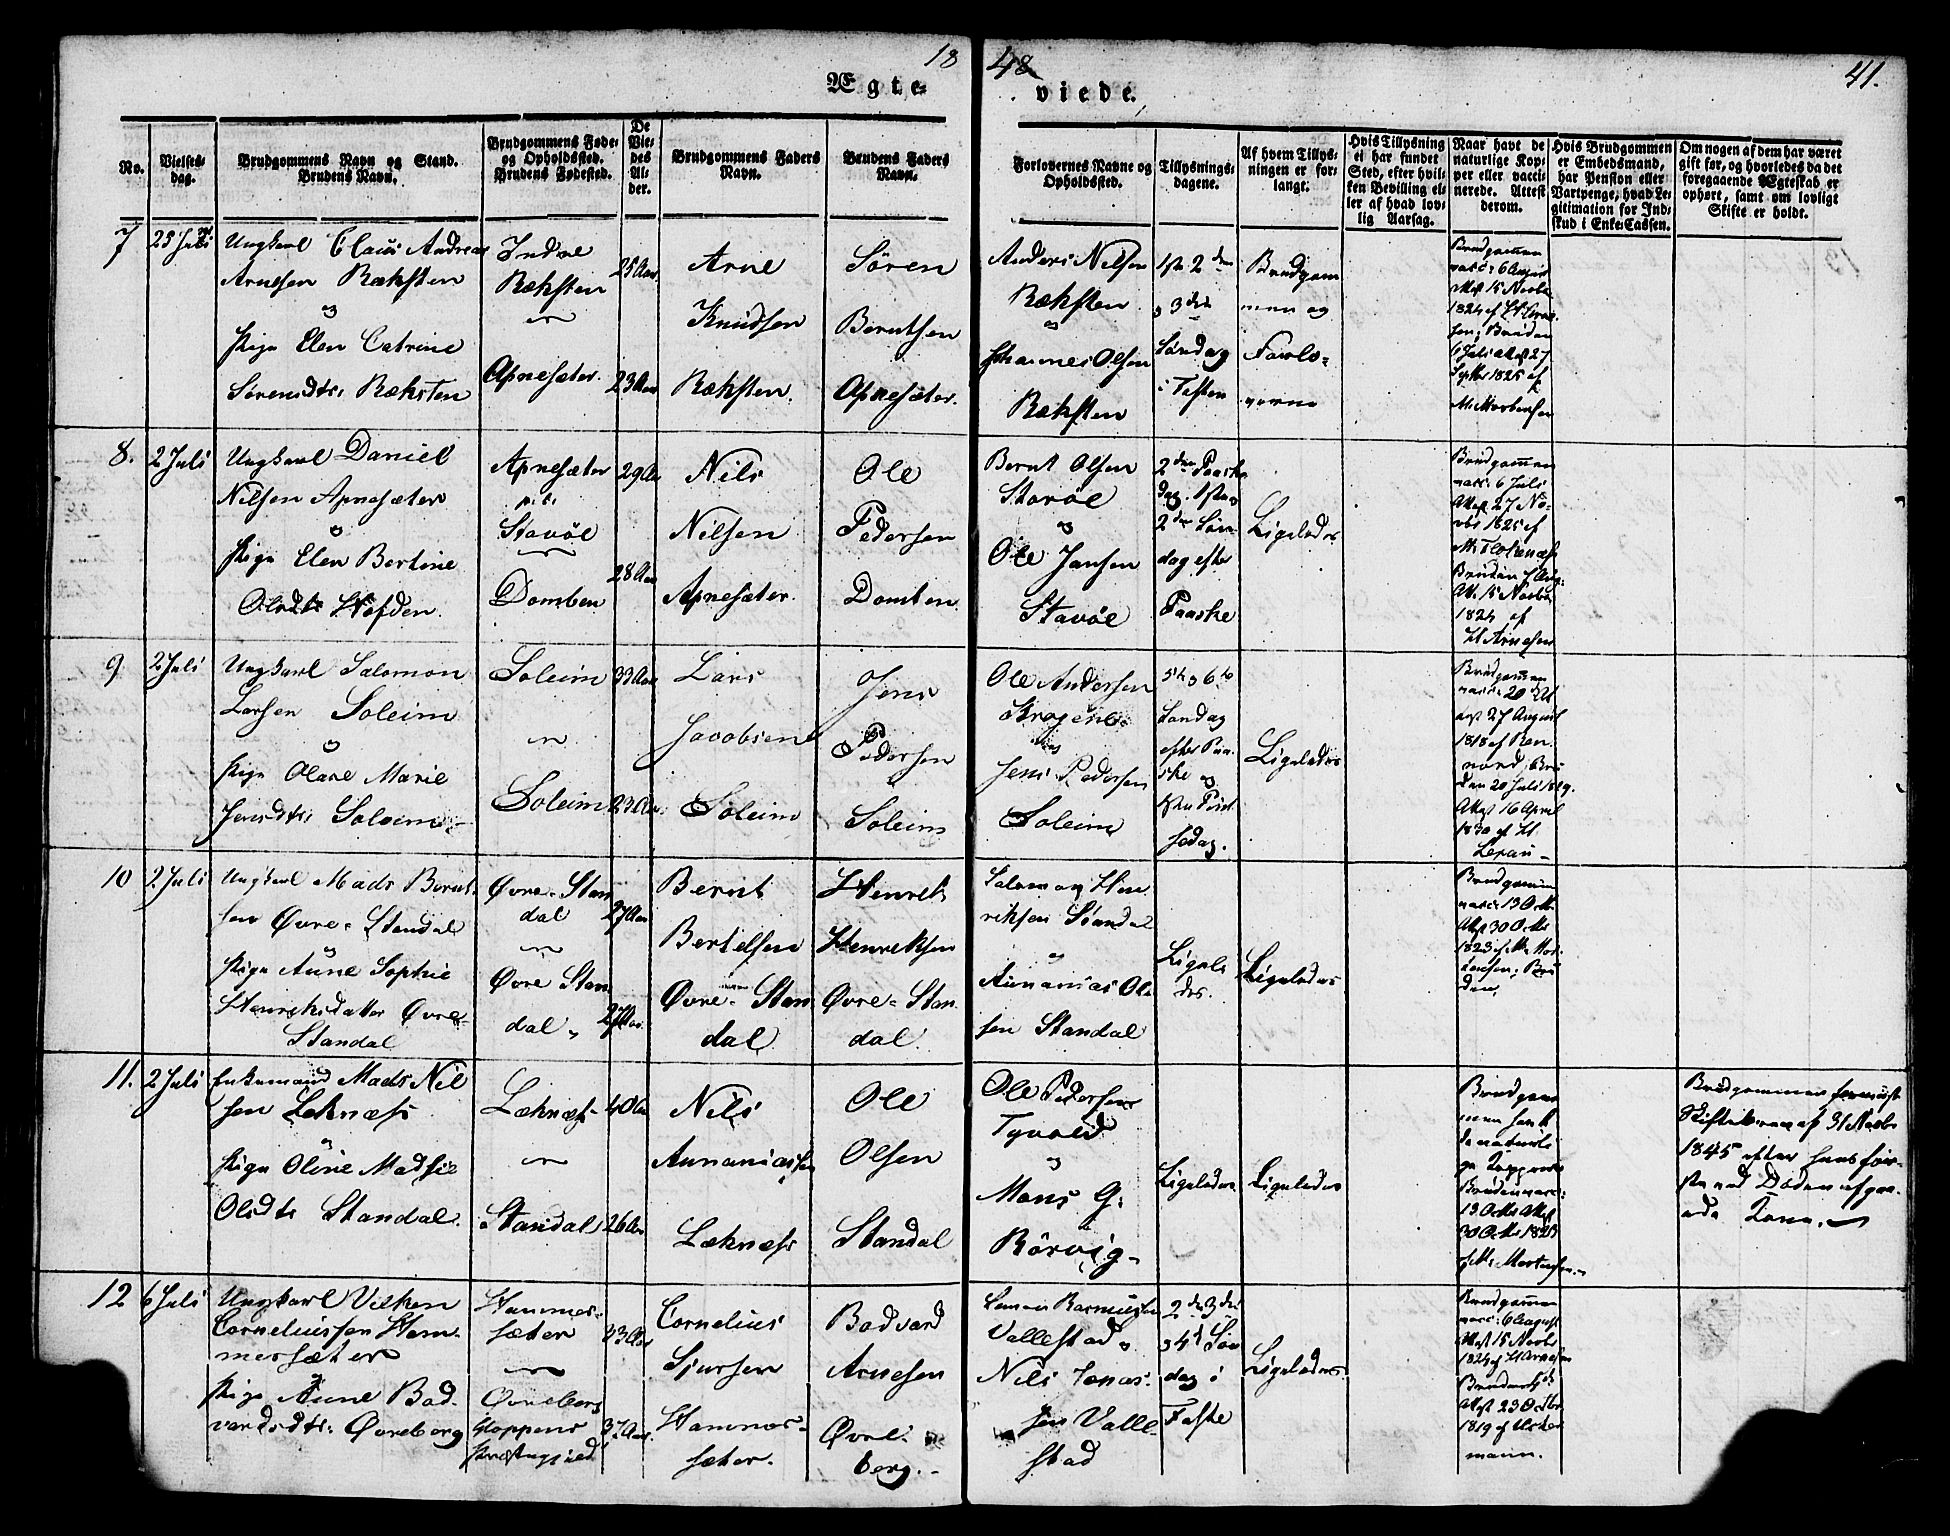 18 48
41.
Ægte viede.
No.
Vielses-
dag.
Brudgommens Navn og Stand.
Brudens Navn.
Brudgommens Føde-
og Opholdssted.
Brudens Fødested.
De
Vie-
des
Al-
der.
Brudgommens Faders
Navn.
Brudens Faders
Navn.
Forlovernes Navne og
Opholdssted.
Tillysnings-
dagene.
Af hvem Tillys-
ningen er for-
langt.
Hvis Tillysning
ei har fundet
Sted, efter hvil-
ken Bevilling el-
ler af hvad lov-
lig Aarsag.
Naar havt de
naturlige Kop-
per eller vacci-
nerede. Attest
derom.
Hvis Brudgommen
er Embedsmand,
har Pension eller
Vartpenge, hvad Le-
gitimation for Ind-
skud i Enke-Cassen.
Om nogen af dem har været
gift før, og hvorledes da det
foregaaende Ægteskab er
ophørt, samt om lovligt
Skifte er holdt.
7
Ungkarl Claus Andreas
Arnesen Ræksten
og
Pige Elen Catrine
Sørensdtr: Ræksten
Indre
Ræksten
Apnesæter.
25 Aar
23 Aar
Arne
Knudsen
Ræksten.
Søren
Berntsen
Apnesæter.
Anders Nilsen
Ræksten
og
Johannes Olsen
Ræksten
1ste 2den
og 3die
Søndag
i Fasten
Brudgom
men og
Forlo-
verne
Brudgommen
vacc: 6 August
Attest 15 Novbr
1824 af H Arne
sen; Bruden
6 Juli Attest 27
Septbr 1825 af
M. Mortensen
8.
2 Juli
Ungkarl Daniel
Nilsen Apnesæter
og
Pige Elen Bertine
Olsdtr Hefden
Apnesæter
Stavøe
Domben
29 Aar
28 Aar
Nils
Nilsen
Apnesæter.
Ole
Pedersen
Domben
Bernt Olsen
Stavøe
og
Ole Jansen
Stavøe
2den Paaske
dag. 1ste og
2den Søn-
dag efter
Paaske
Ligeledes
Brudgommen
vacc: 6 Juli
Attest 27 No-
vbr 1825 af
Bruden 7 Aug:
Att. 15 Novbr
1824 af
H Arnesen
9
2 Juli
Ungkarl Salomon
Larsen Soleim
og
Pige Olave Marie
Jensdtr: Soleim
Soleim
Soleim
33 Aar
23 Aar
Lars
Jacobsen
Soleim
Jens
Pedersen
Soleim
Ole Andersen
og
Jens Pedersen
Soleim
5te og 6te
Søndag
efter Paa-
ske og
1ste Pint
sedag.
Ligeledes
Brudgommen
vacc: 20
Attest 27 August
1818 af Ren
nord; Bru
den 20 Juli 1829.
Attest 16 April
1830 af H.
10
2 Juli
Ungkarl Mads Bernt-
sen Øvre-Standal
og
Pige Anne Sophie
Henriksdatter Øvre-
Standal
Øvre-Stan
dal
Øvre Stan
dal
27 Aar
27 Aar
Bernt
Bertelsen
Øvre-Stan
dal
Henrek
Henreksen
Øvre-Stan
dal.
Salamon Hen
riksen Standal
og
Annanias Ol
sen Standal
Ligele
des.
Ligeledes
Brudgommen
vacc: 13 Octbr
Attest 30 Octbr
1823 af M. Mor
tensen; Bru
den,
11.
2 Juli
Enkemand Mads Nil
sen Leknæss
og
Pige Oline Madsie
Olsdtr Standal.
Læknæss
Standal
40 Aar
26 Aar
Nils
Annaniassen
Læknæss
Ole
Olsen
Standal
Ole Pedersen
Tyvold
og
Mons G:
Rörvig
Ligeledes
Ligeledes
Brudgom
men havt
de naturli
ge Kopper
Bruden vacc:
13 Octbr Attest
30 Octbr 1823
af M. Mortensen
Brudgommen foreviist
Skiftebrev af 31 Marts
1845 efter hans før-
ste ved Døden afgaa-
ede Kone.
12
6 Juli
Ungkarl Vilken
Corneliussen Ham-
mersæter
og
Pige Anne Bod-
vardsdtr: Øvreberg
Hammer-
sæter
Øvreberg
Gloppens
Præstegjeld
33 Aar
37 Aar.
Cornelius
Sjursen
Hammer-
sæter.
Bodvard
Arnesen
Øvre-
berg.
Simon Rasmussen
Vallestad og
Nils Jonas-
sen Valle-
stad
2den 3die
og 4de Søn
dag i
Faste
Ligeledes
Brudgommen
vacc: 6 August
Attest 15 Novbr
1824 af H Arnesen
Bruden
Attest 23 Octbr
1819 af
mann.